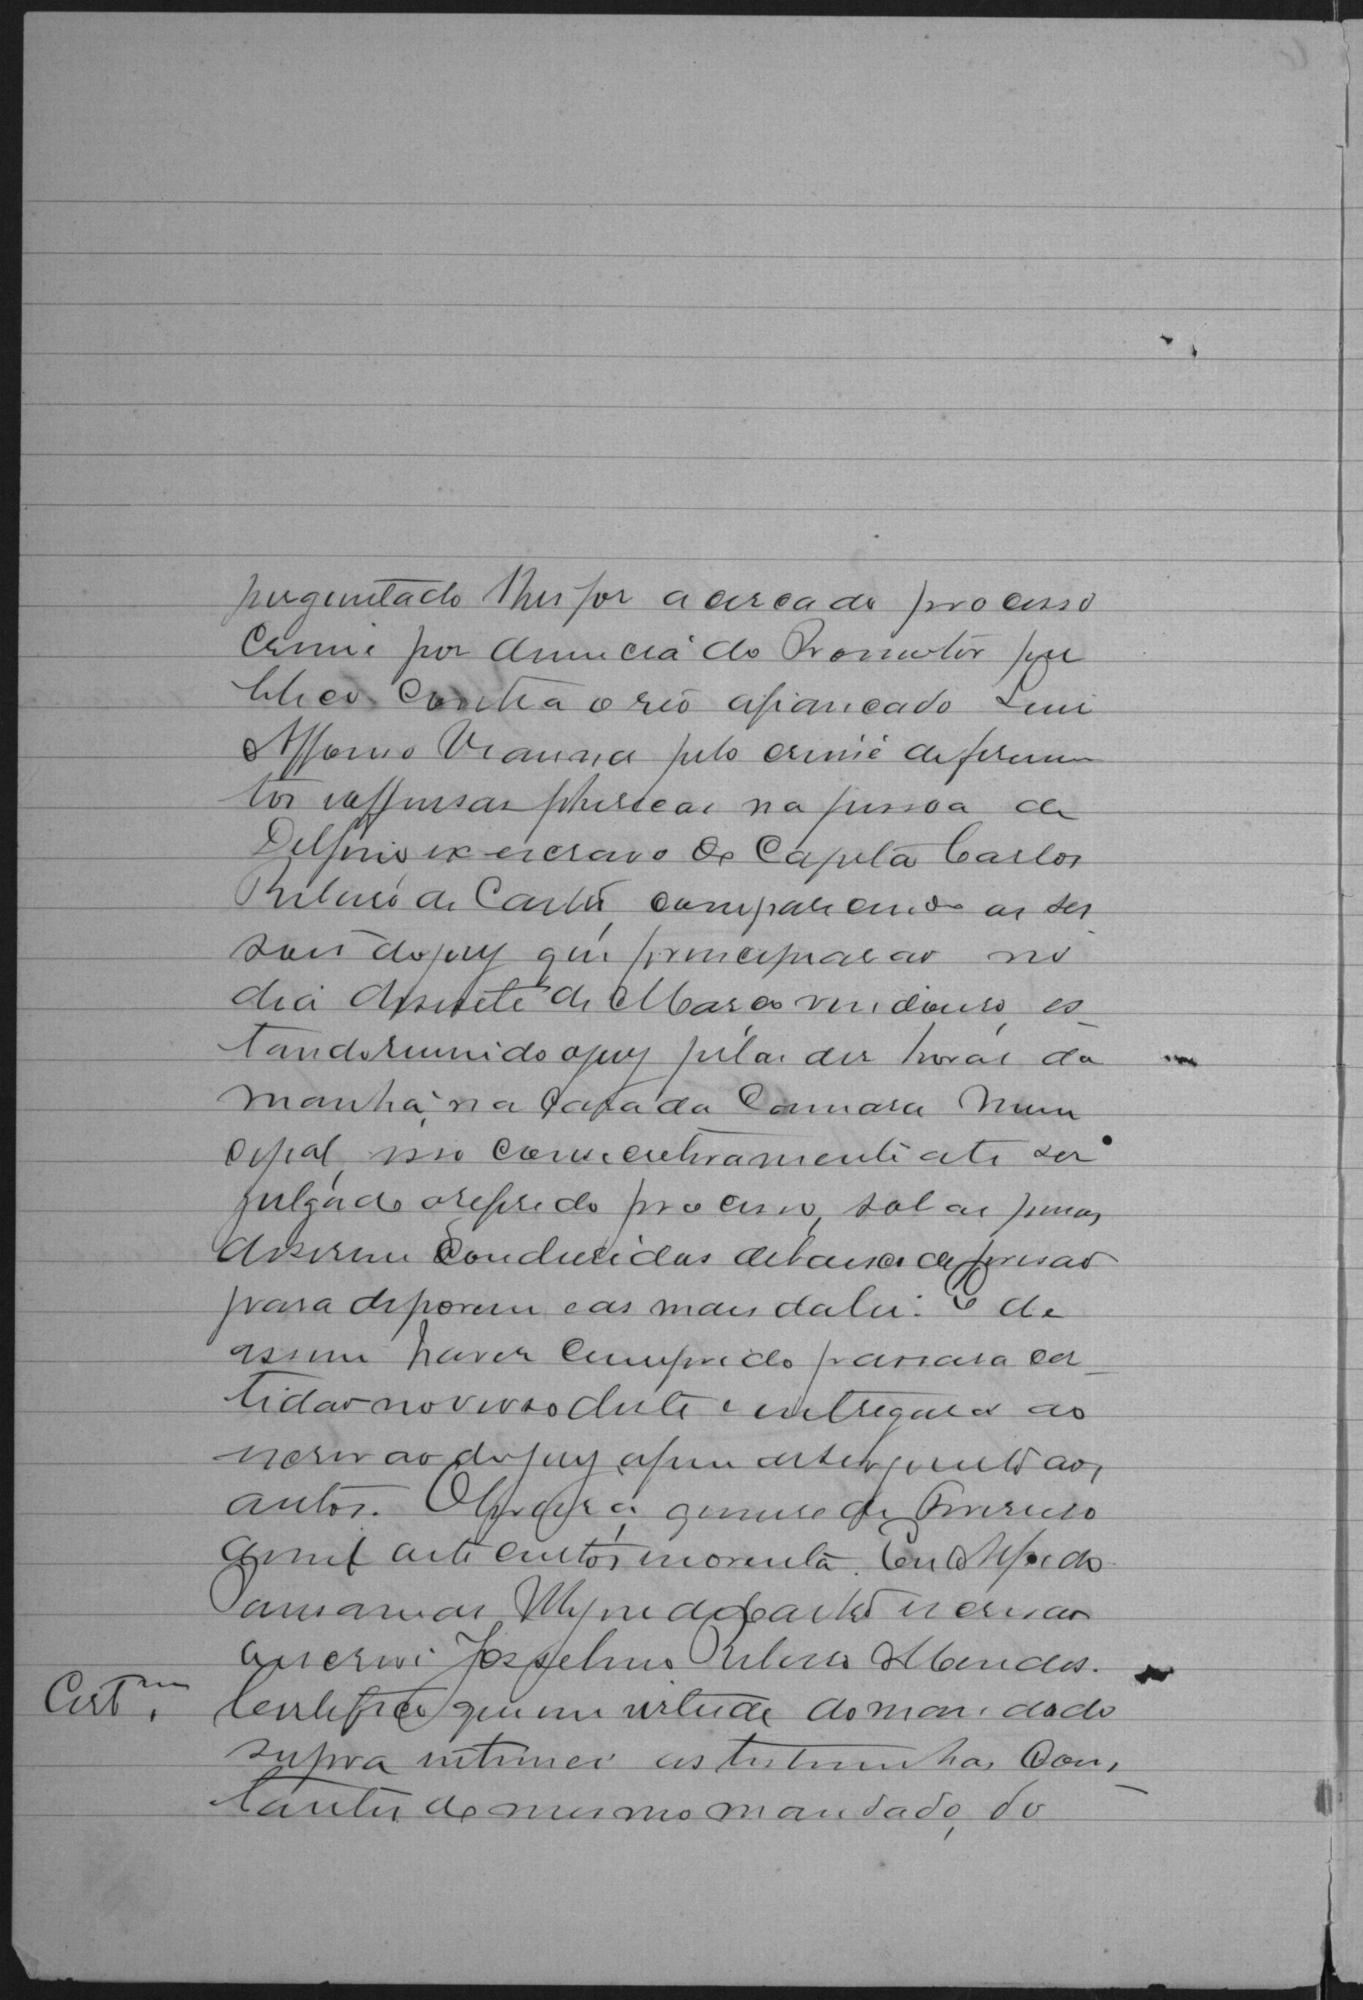 perguntado lhes for acerca do processo
crime por denuncia do Promotor pu
blico contra o reo afiancado Luis
Affonso Vianna pelo crime de ferimen
tos e offensas phisicas na pessoa de
Delfino ex escravo de Capitã Carlos
Ribeiro de Castro, comparecendo as ses
soes do jury que principiarão no
dia desesete de Março vindouro, es
tando reunido o jury pelas dez horas da
manhã, na Casa da Camara Muni
cipal, isso consecutivamente ate ser
julgado o referido processo, sob as penas
de serem conduzidas debaixo de prisão
para deporem e as mais da lei. E de
assim haver cumprido passara cer
tidão no verso deste e entregara ao
escrivão do jury afim de ser junto aos
autos. O que de Fevereiro
de mil oito centos e noventa. Eu Alfredo
de Castro escrivão
o escrevi Josselino Ribeiro Mendes.
Cert.m
Certifico que em virtude do mandado
supra intimei as testemunhas cons
tantes do mesmo mandado, do